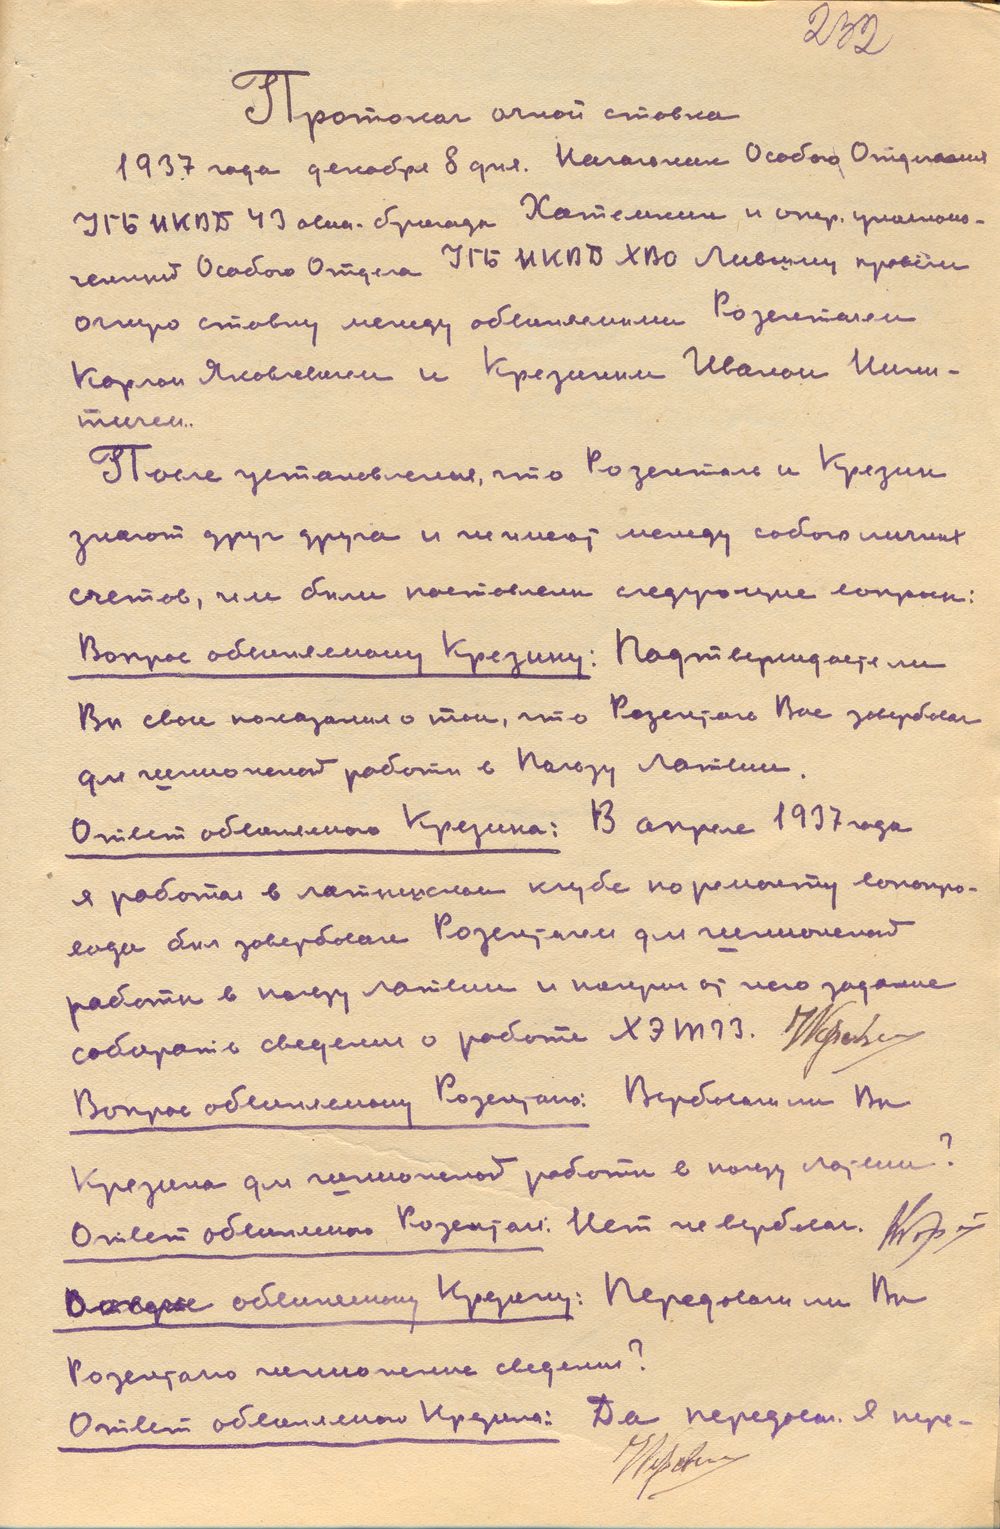 232
Протокол очной ставки
1937 года декабря 8 дня. Начальник Особого Отделения
УГБ НКВД 43 авиа. бригады Хатемкин и опер. уполномо-
ченный Особого Отдела УГБ НКВД ХВО Лившиц провели
очную ставку между обвиняемыми Розенталем
Карлом Яковлевичем и Крезиным Иваном Ники-
тичем.
После установления, что Розенталь и Крезин
знают друг друга и не имеют между собою личных
счетов, им были поставлены следующие вопросы:
Вопрос обвиняемому Крезину: Подтверждаете ли
Вы свои показания о том, что Розенталь Вас завербовал
для шпионской работы в пользу Латвии.
Ответ обвиняемого Крезина: В апреле 1937 года
я работая в латышском клубе по ремонту водопро-
вода был завербован Розенталем для шпионской
работы в пользу Латвии и получил от него задание
собирать сведения о работе ХЭТЗ.
Вопрос обвиняемому Розенталю: Вербовали ли Вы
Крезина для шпионской работы в пользу Латвии?
Ответ обвиняемого Розенталя: Нет не вербовал.
Вопрос обвиняемому Крезину: Передавали ли Вы
Розенталю шпионские сведения?
Ответ обвиняемого Крезина: Да передавал. Я пере-